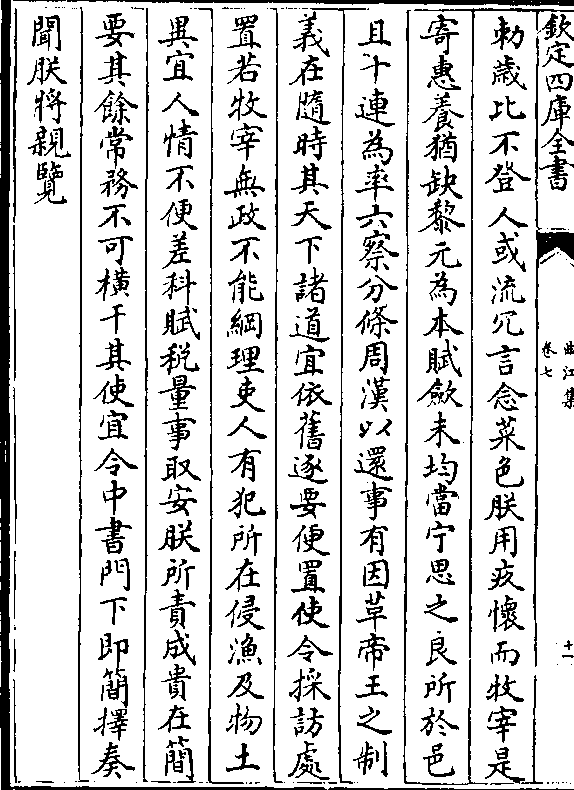 欽定四庫全書
曲江集
卷七
十一
勅歲比不登人或流冗言念菜色朕用疚懷而牧宰是
寄惠養猶缺黎元為本賦斂未均當宁思之良所於邑
且十連為率六察分條周漢以還事有因革帝王之制
義在隨時其天下諸道宜依舊逐要便置使令採訪處
置若牧宰無政不能綱理吏人有犯所在侵漁及物土
異宜人情不便差科賦稅量事取安朕所責成貴在簡
要其餘常務不可橫干其使宜令中書門下即簡擇奏
聞朕將親覽